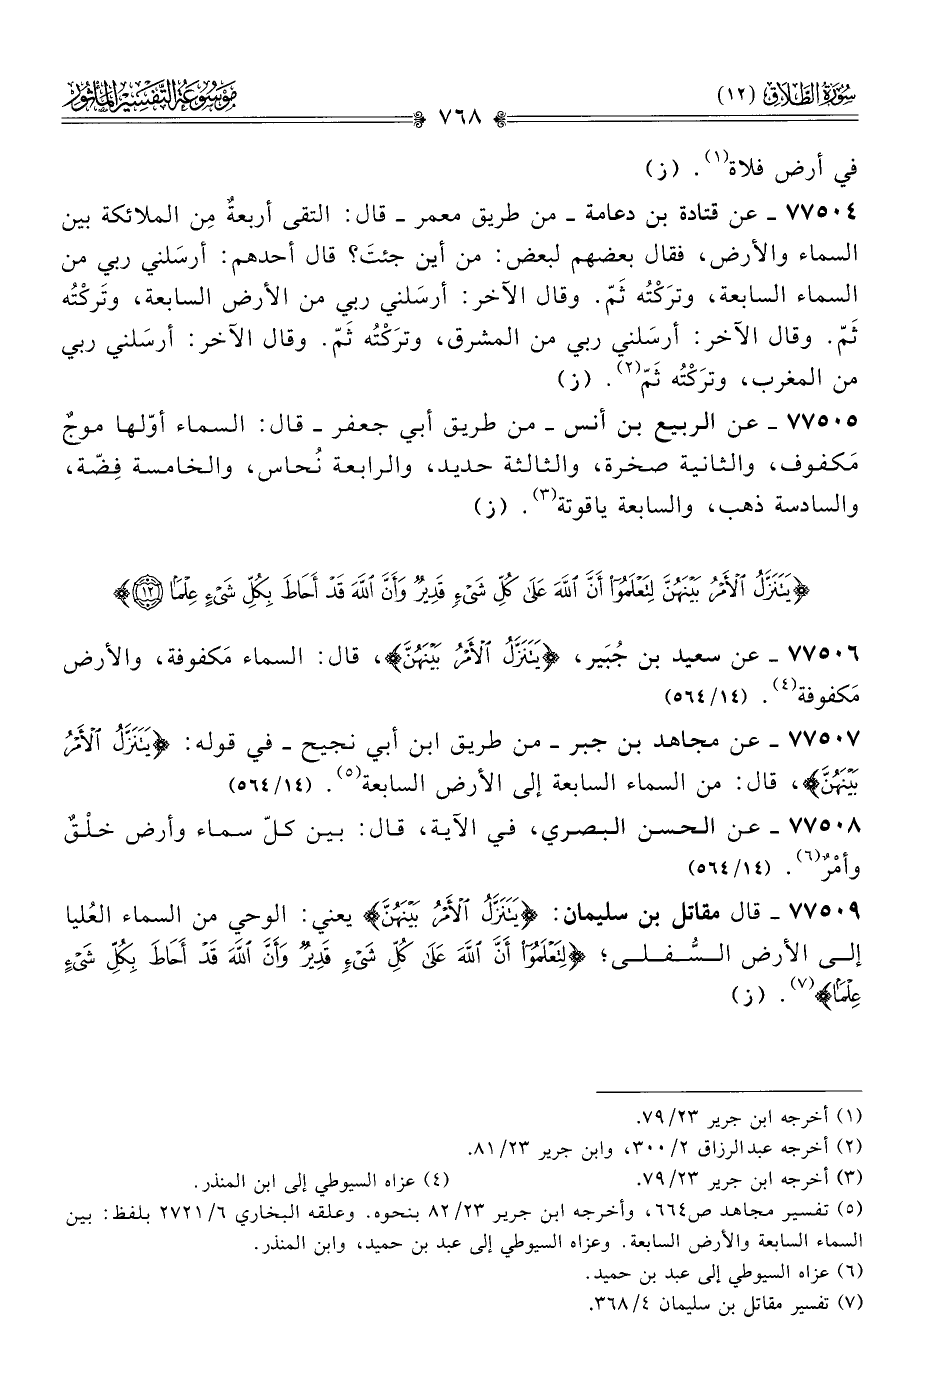 سُورَةُ الطَّلَاقِ (١٢)
٧٦٨
مَوْسُوعَةُ التَّفْسِيرِ المَأْثُور
في أرض فلاة(١). (ز)
٧٧٥٠٤ ـ عن قتادة بن دعامة ـ من طريق معمر ـ قال: التقى أربعةٌ مِن الملائكة بين
السماء والأرض، فقال بعضهم لبعض: من أين جئتَ؟ قال أحدهم: أرسَلني ربي من
السماء السابعة، وتركْتُه ثَمّ. وقال الآخر: أرسَلني ربي من الأرض السابعة، وتَركْتُه
ثَمّ. وقال الآخر: أرسَلني ربي من المشرق، وتركْتُه ثَمّ. وقال الآخر: أرسَلني ربي
من المغرب، وتَركْتُه ثَمّ(٢). (ز)
٧٧٥٠٥ ـ عن الربيع بن أنس ـ من طريق أبي جعفر ـ قال: السماء أوّلها موجٌ
مَكفوف، والثانية صخرة، والثالثة حديد، والرابعة نُحاس، والخامسة فِضّة،
والسادسة ذهب، والسابعة ياقوتة(٣). (ز)
﴿يَتَنَزَّلُ ٱلْأَمْرُ بَيْنَهُنَّ لِتَعْلَمُوٓا۟ أَنَّ ٱللَّهَ عَلَىٰ كُلِّ شَىْءٍ قَدِيرٌ وَأَنَّ ٱللَّهَ قَدْ أَحَاطَ بِكُلِّ شَىْءٍ عِلْمًا ١٢﴾
٧٧٥٠٦ ـ عن سعيد بن جُبَير، ﴿يَتَنَزَّلُ ٱلْأَمْرُ بَيْنَهُنَّ﴾، قال: السماء مَكفوفة، والأرض
مَكفوفة(٤). (١٤/ ٥٦٤)
٧٧٥٠٧ ـ عن مجاهد بن جبر ـ من طريق ابن أبي نجيح ـ في قوله: ﴿يَتَنَزَّلُ ٱلْأَمْرُ
بَيْنَهُنَّ﴾، قال: من السماء السابعة إلى الأرض السابعة(٥). (١٤/ ٥٦٤)
٧٧٥٠٨ ـ عن الحسن البصري، في الآية، قال: بين كلّ سماء وأرض خلْقٌ
وأمْرٌ(٦). (١٤/ ٥٦٤)
٧٧٥٠٩ ـ قال مقاتل بن سليمان: ﴿يَتَنَزَّلُ ٱلْأَمْرُ بَيْنَهُنَّ﴾ يعني: الوحي من السماء العُليا
إلى الأرض السُّفلى؛ ﴿لِتَعْلَمُوٓا۟ أَنَّ ٱللَّهَ عَلَىٰ كُلِّ شَىْءٍ قَدِيرٌ وَأَنَّ ٱللَّهَ قَدْ أَحَاطَ بِكُلِّ شَىْءٍ
عِلْمًا﴾(٧). (ز)
(١) أخرجه ابن جرير ٢٣/ ٧٩.
(٢) أخرجه عبدالرزاق ٢/ ٣٠٠، وابن جرير ٢٣/ ٨١.
(٣) أخرجه ابن جرير ٢٣/ ٧٩. (٤) عزاه السيوطي إلى ابن المنذر.
(٥) تفسير مجاهد ص٦٦٤، وأخرجه ابن جرير ٢٣/ ٨٢ بنحوه. وعلقه البخاري ٦/ ٢٧٢١ بلفظ: بين
السماء السابعة والأرض السابعة. وعزاه السيوطي إلى عبد بن حميد، وابن المنذر.
(٦) عزاه السيوطي إلى عبد بن حميد.
(٧) تفسير مقاتل بن سليمان ٤/ ٣٦٨.